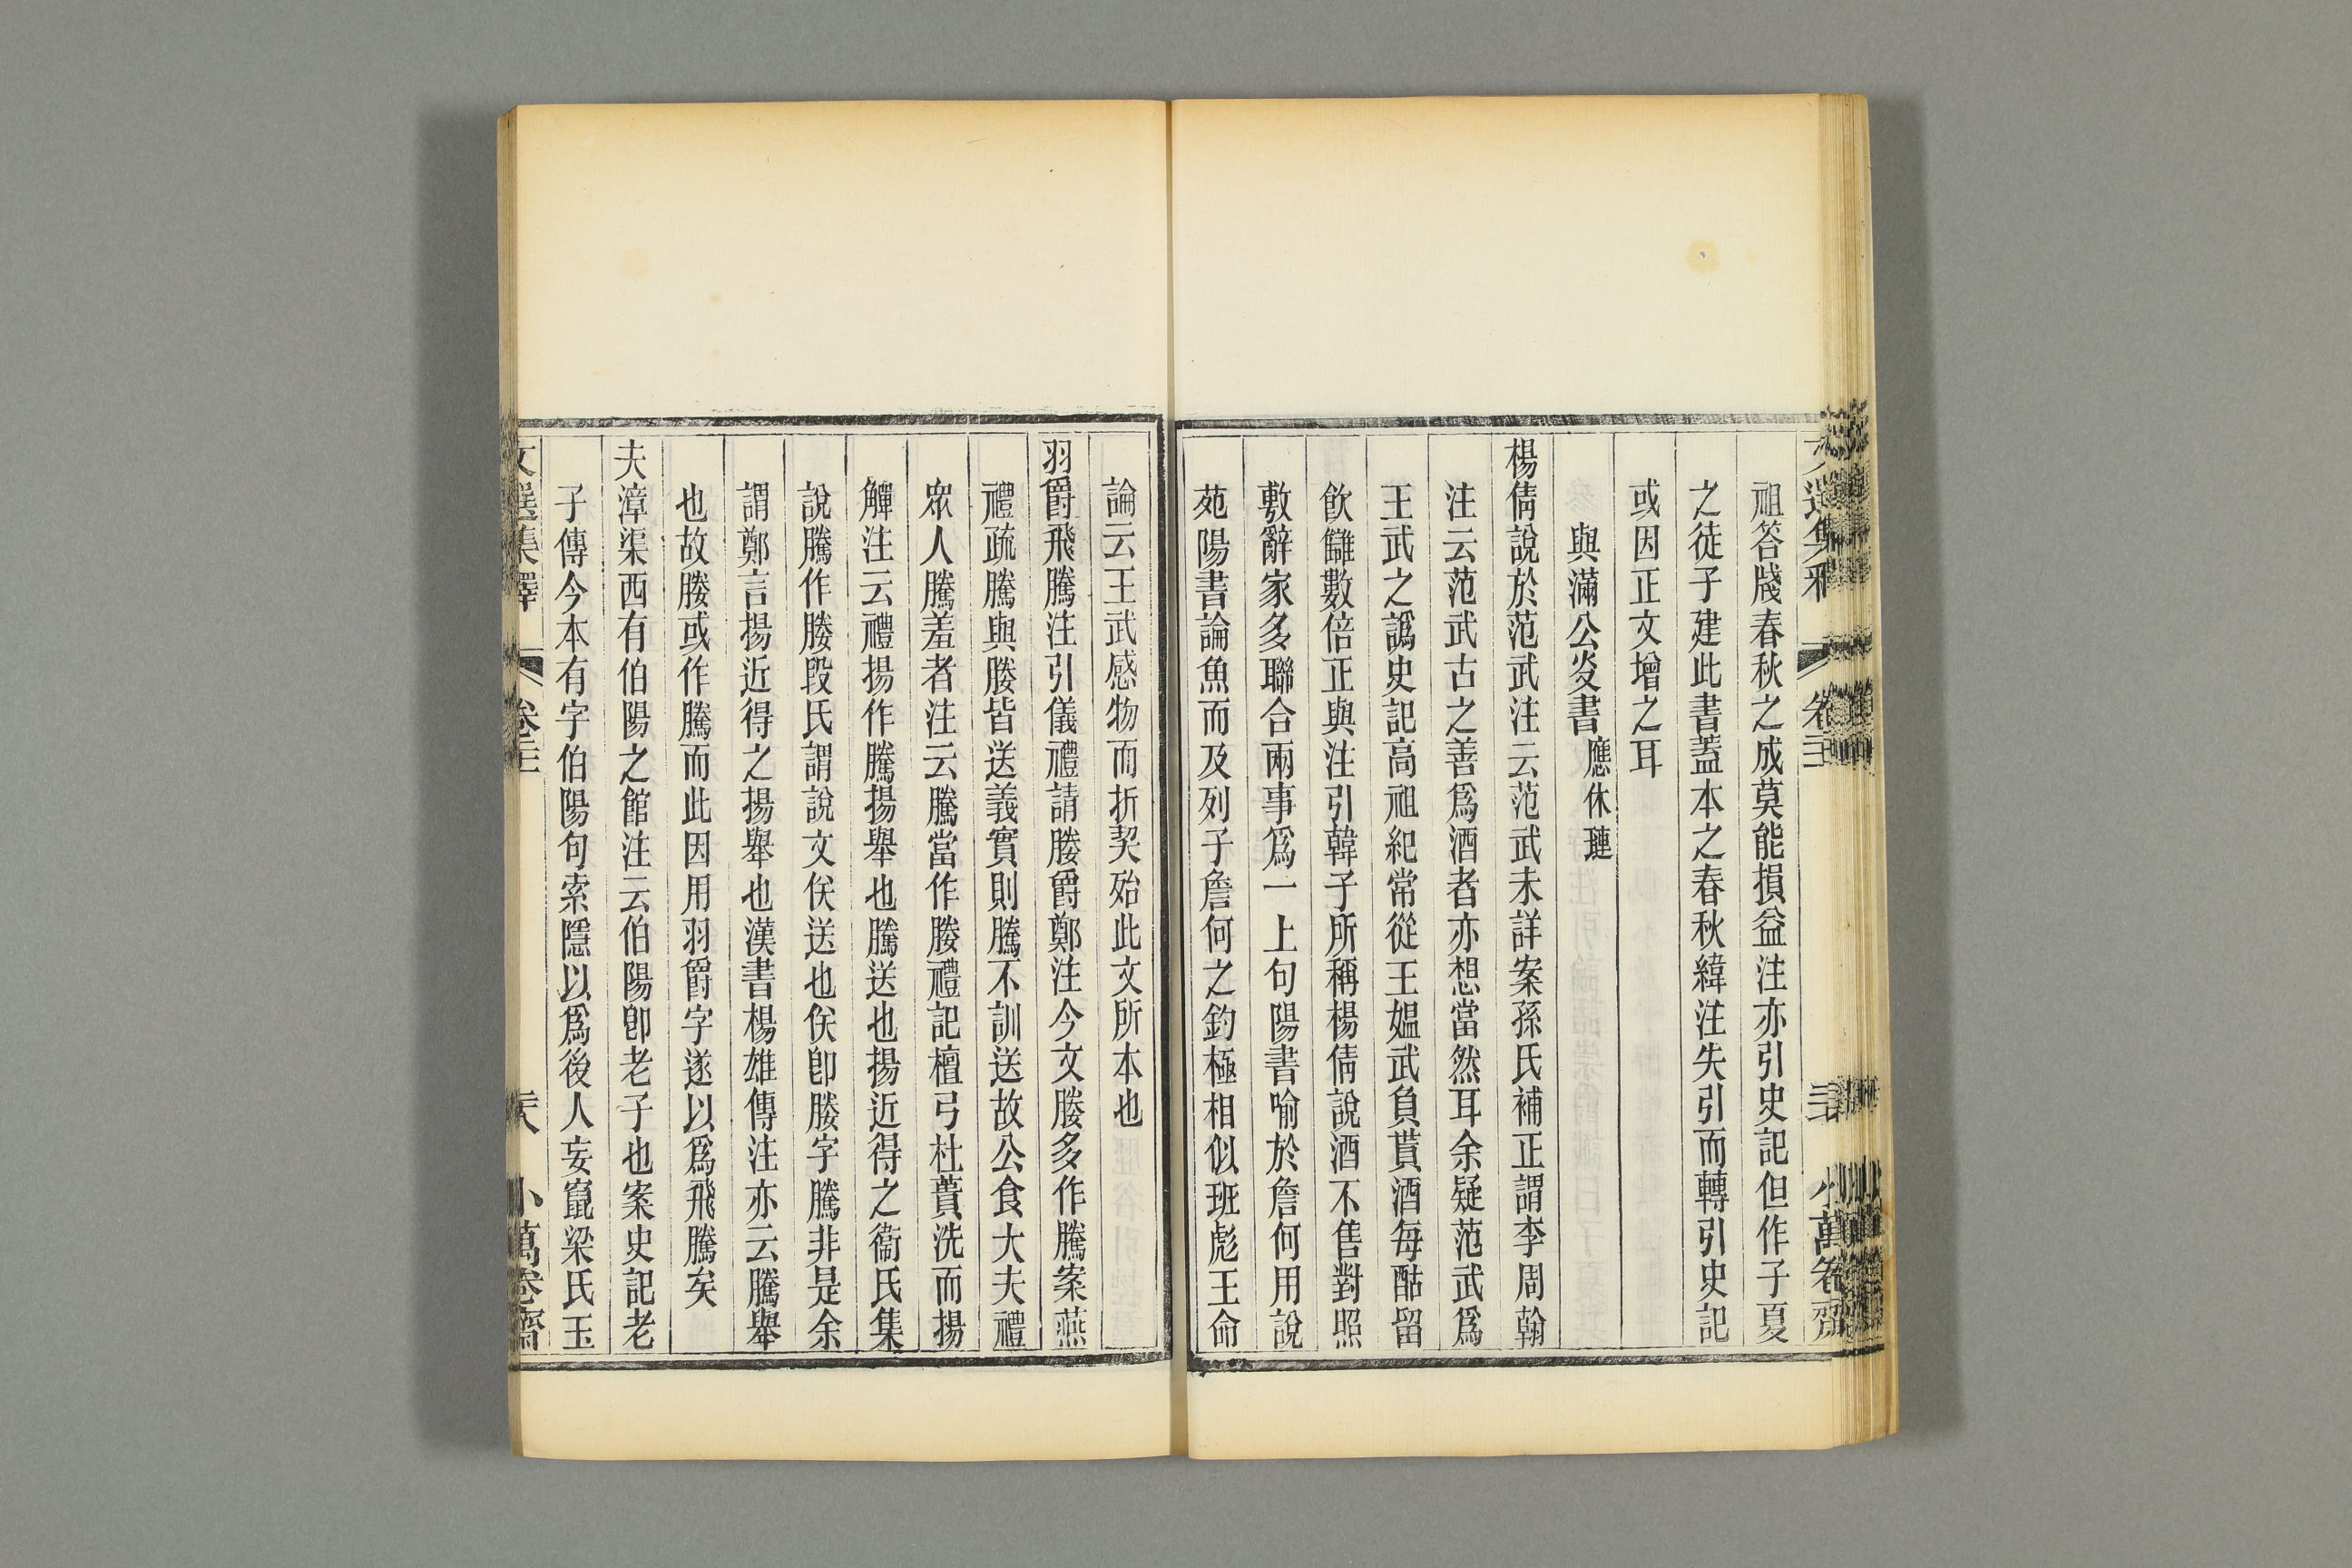 祖答牋春秋之成莫能損益注亦引史記但作子夏
之徒子建此書蓋本之春秋緯注失引而轉引史記
或因正文增之耳
與滿公炎書應休璉
楊倩說於范武注云范武未詳案孫氏補正謂李周翰
注云范武古之善爲酒者亦想當然耳余疑范武爲
王武之譌史記高祖紀常從王媼武負貰酒每酤留
飲讎數倍正與注引韓子所稱楊倩說酒不售對照
敷辭家多聯合兩事爲一上句陽書喻於詹何用說
苑陽書論魚而及列子詹何之釣極相似班彪王命
論云王武感物而折契殆此文所本也
羽爵飛騰注引儀禮請媵爵鄭注今文媵多作騰案燕
禮疏騰與媵皆送義實則騰不訓送故公食大夫禮
眾人騰羞者注云騰當作媵禮記檀弓杜蕢洗而揚
觶注云禮揚作騰揚舉也騰送也揚近得之衞氏集
說騰作媵段氏謂說文佚送也佚卽媵字騰非是余
謂鄭言揚近得之揚舉也漢書楊雄傳注亦云騰舉
也故媵或作騰而此因用羽爵字遂以爲飛騰矣
夫漳渠西有伯陽之館注云伯陽卽老子也案史記老
子傳今本有字伯陽句索隱以爲後人妄竄梁氏玉
文選集釋 卷 小萬卷齋